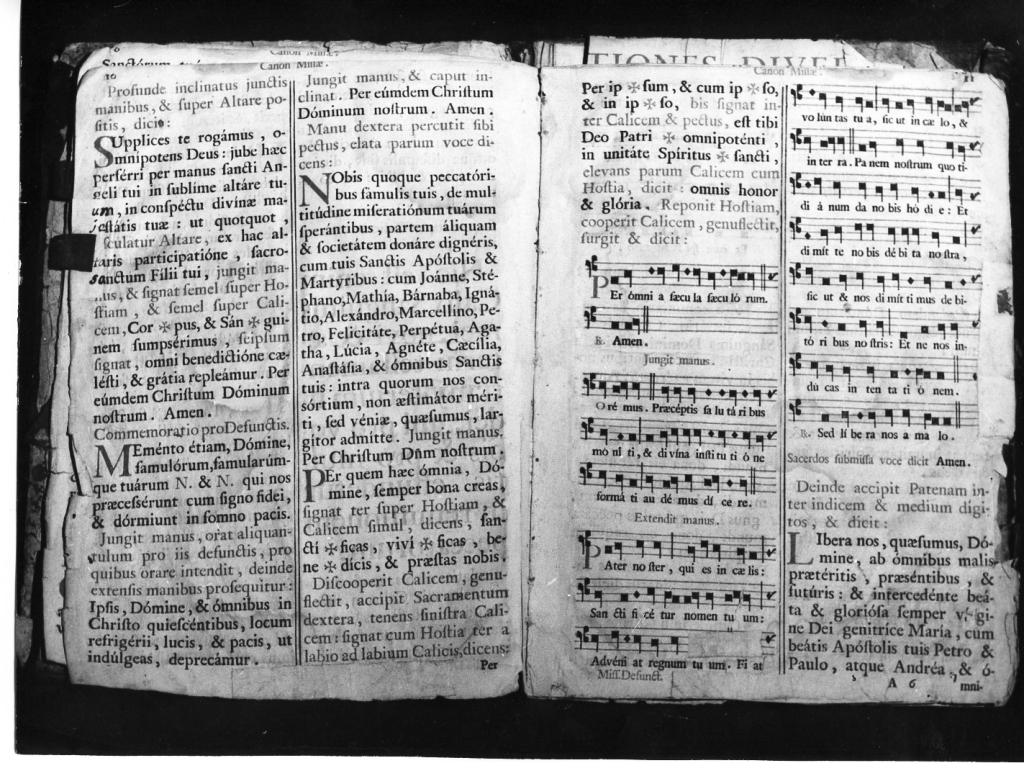 Canon Missæ.
10
Profunde inclinatus junctis
manibus, & ſuper Altare po-
ſitis, dicit:
SUpplices te rogámus, o-
mnipotens Deus: jube hæc
perférri per manus ſancti An-
geli tui in ſublíme altáre tu-
um, in conſpéctu divínæ ma-
jeſtátis tuæ: ut quotquot,
ſculatur Altare, ex hac al-
taris participatióne, ſacro-
ſanctum Fílii tui, jungit ma-
nus, & ſignat ſemel ſuper Ho-
ſtiam, & ſemel ſuper Cali-
cem, Cor ✠ pus, & Sán ✠ gui-
nem ſumpſérimus, ſeipſum
ſignat, omni benedictióne cæ-
léſti, & grátia repleámur. Per
eúmdem Chriſtum Dóminum
noſtrum. Amen.
Commemoratio pro Defunctis.
MEménto étiam, Dómine,
famulórum, famularúm-
que tuárum N. & N. qui nos
præceſſérunt cum ſigno fidei,
& dórmiunt in ſomno pacis.
Jungit manus, orat aliquan-
tulum pro iis defunctis, pro
quibus orare intendit, deinde
extenſis manibus proſequitur:
Ipſis, Dómine, & ómnibus in
Chriſto quieſcéntibus, locum
refrigérii, lucis, & pacis, ut
indúlgeas, deprecámur.
Jungit manus, & caput in-
clinat. Per eúmdem Chriſtum
Dóminum noſtrum. Amen.
Manu dextera percutit ſibi
pectus, elata parum voce di-
cens:
NObis quoque peccatóri-
bus fámulis tuis, de mul-
titúdine miſeratiónum tuárum
ſperántibus, partem áliquam
& ſocietátem donáre dignéris,
cum tuis Sanctis Apóſtolis &
Martyribus: cum Joánne, Sté-
phano, Mathía, Bárnaba, Igná-
tio, Alexándro, Marcellíno, Pe-
tro, Felicitáte, Perpétuâ, Aga-
tha, Lúcia, Agnéte, Cæcília,
Anaſtáſia, & ómnibus Sanctis
tuis: intra quorum nos con-
sórtium, non æſtimátor méri-
ti, ſed véniæ, quæſumus, lar-
gitor admítte. Jungit manus.
Per Chriſtum Dñm noſtrum.
PEr quem hæc ómnia, Dó-
mine, ſemper bona creas,
ſignat ter ſuper Hoſtiam, &
Calicem ſimul, dicens, ſan-
ctí ✠ ficas, viví ✠ ficas, be-
ne ✠ dícis, & præſtas nobis.
Diſcooperit Calicem, genu-
flectit, accipit Sacramentum
dextera, tenens ſiniſtra Cali-
cem: ſignat cum Hoſtia ter a
labio ad labium Calicis, dicens:
Per
Canon Miſſæ.
11
Per ip ✠ ſum, & cum ip ✠ ſo,
& in ip ✠ ſo, bis ſignat in-
ter Calicem & pectus, eſt tibi
Deo Patri ✠ omnipoténti,
in unitáte Spíritus ✠ ſancti,
elevans parum Calicem cum
Hoſtia, dicit: omnis honor
& glória. Reponit Hoſtiam,
cooperit Calicem, genuflectit,
ſurgit & dicit:
PEr ómni a ſæcu la ſæcu ló rum.
℞. Amen.
Jungit manus.
O ré mus. Præcéptis ſa lu tá ri bus
mó ni ti, & di vína inſti tu ti ó ne
formá ti au dé mus dí ce re.
Extendit manus.
PAter no ſter, qui es in cæ lis:
San cti fi cé tur nomen tu um:
Advéni at regnum tu um. Fi at
Miſſ. Defunct.
vo lún tas tu a, ſic ut in cæ lo, &
in ter ra. Pa nem noſtrum quo ti-
di á num da no bis hó di e: Et
di mít te no bis dé bi ta no ſtra,
ſic ut & nos di mít ti mus de bi-
tó ri bus no ſtris: Et ne nos in-
dú cas in ten ta ti ó nem.
℞. Sed lí be ra nos a ma lo.
Sacerdos ſubmiſſa voce dicit Amen.
Deinde accipit Patenam in-
ter indicem & medium digi-
tos, & dicit:
LIbera nos, quæſumus, Dó-
mine, ab ómnibus malis
prætéritis, præséntibus, &
futúris: & intercedénte beá-
ta & glorióſa ſemper vírgi-
ne Dei genitríce María, cum
beátis Apóſtolis tuis Petro &
Paulo, atque Andréa, & ó-
A 6
mni-